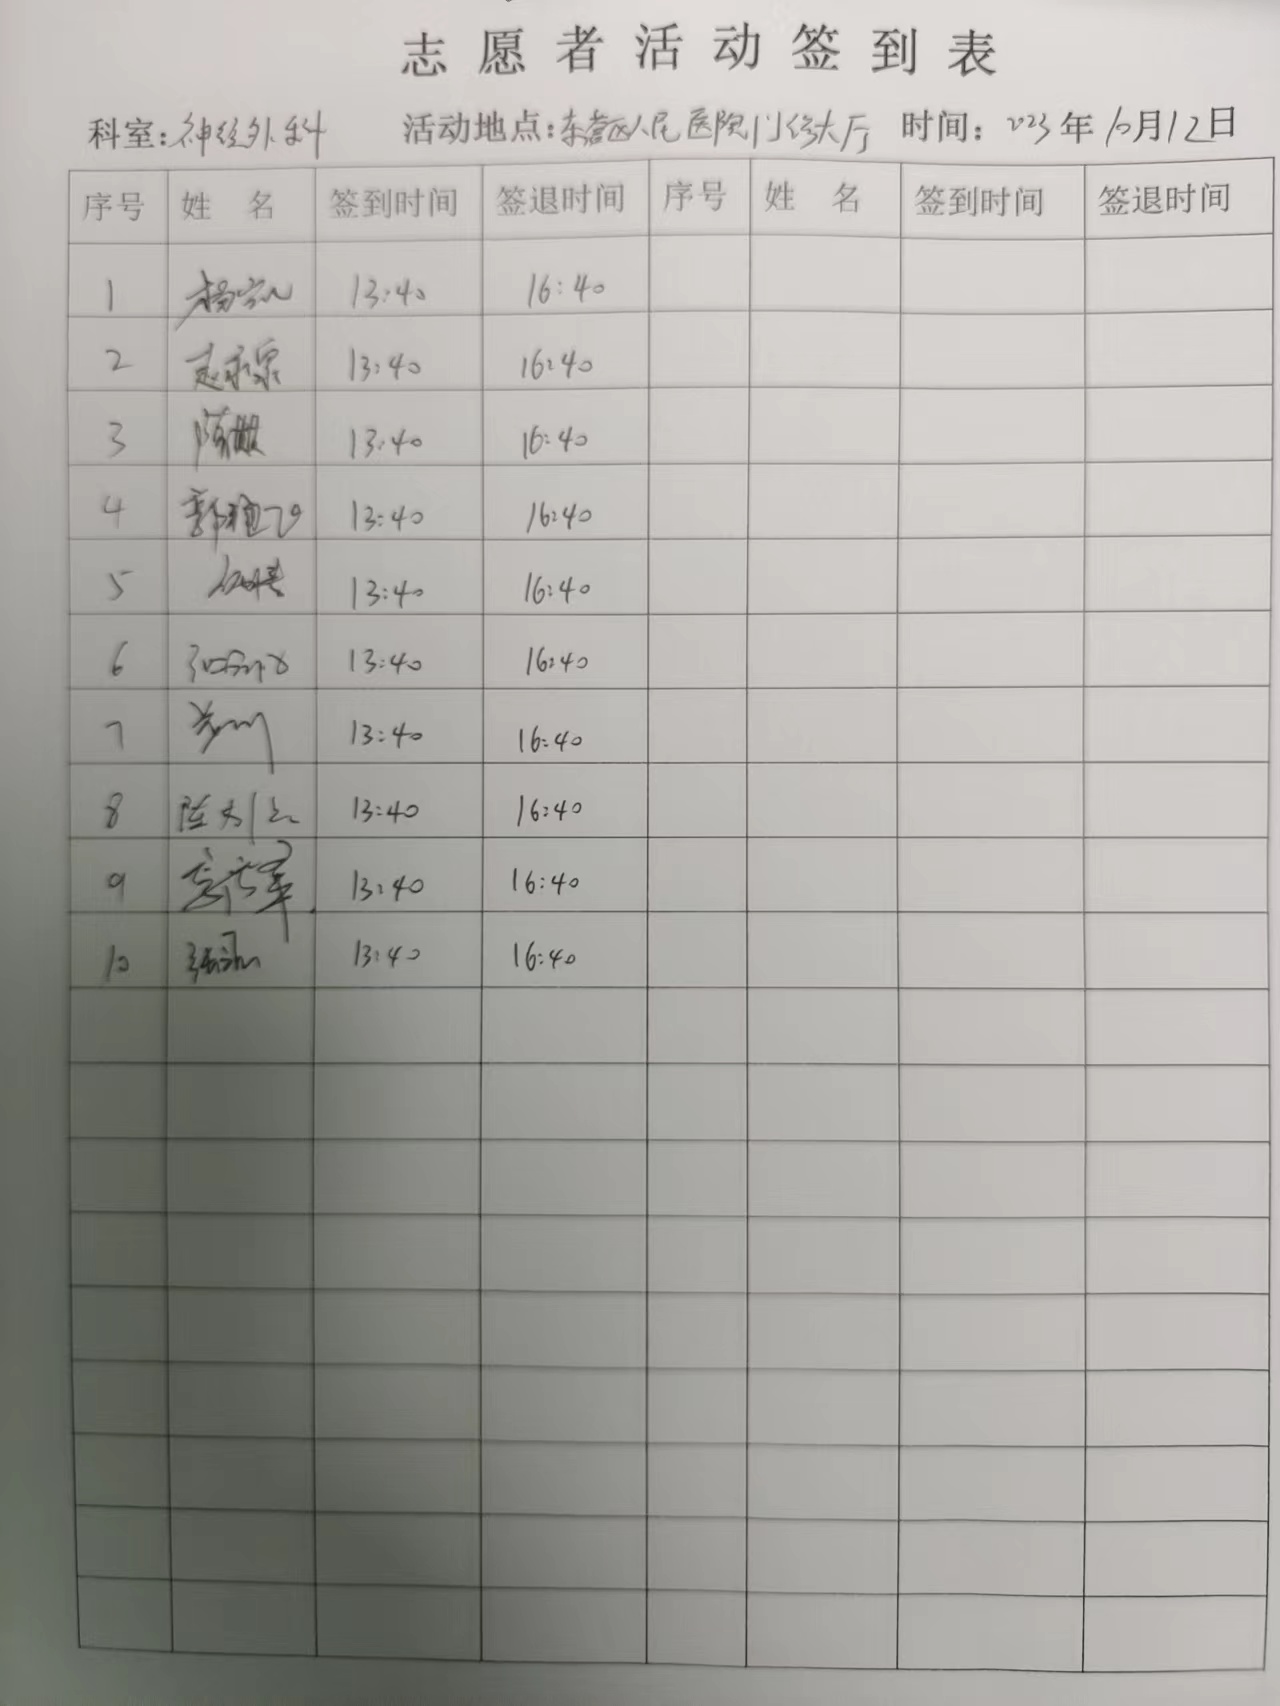 志愿者活动签到表
科室:神经外科 活动地点:东营区人民医院门诊大厅 时间:2023年10月12日
序号 姓名 签到时间 签退时间 序号 姓名 签到时间 签退时间
1 13:40 16:40
2 13:40 16:40
3 13:40 16:40
4 13:40 16:40
5 13:40 16:40
6 13:40 16:40
7 13:40 16:40
8 13:40 16:40
9 13:40 16:40
10 13:40 16:40